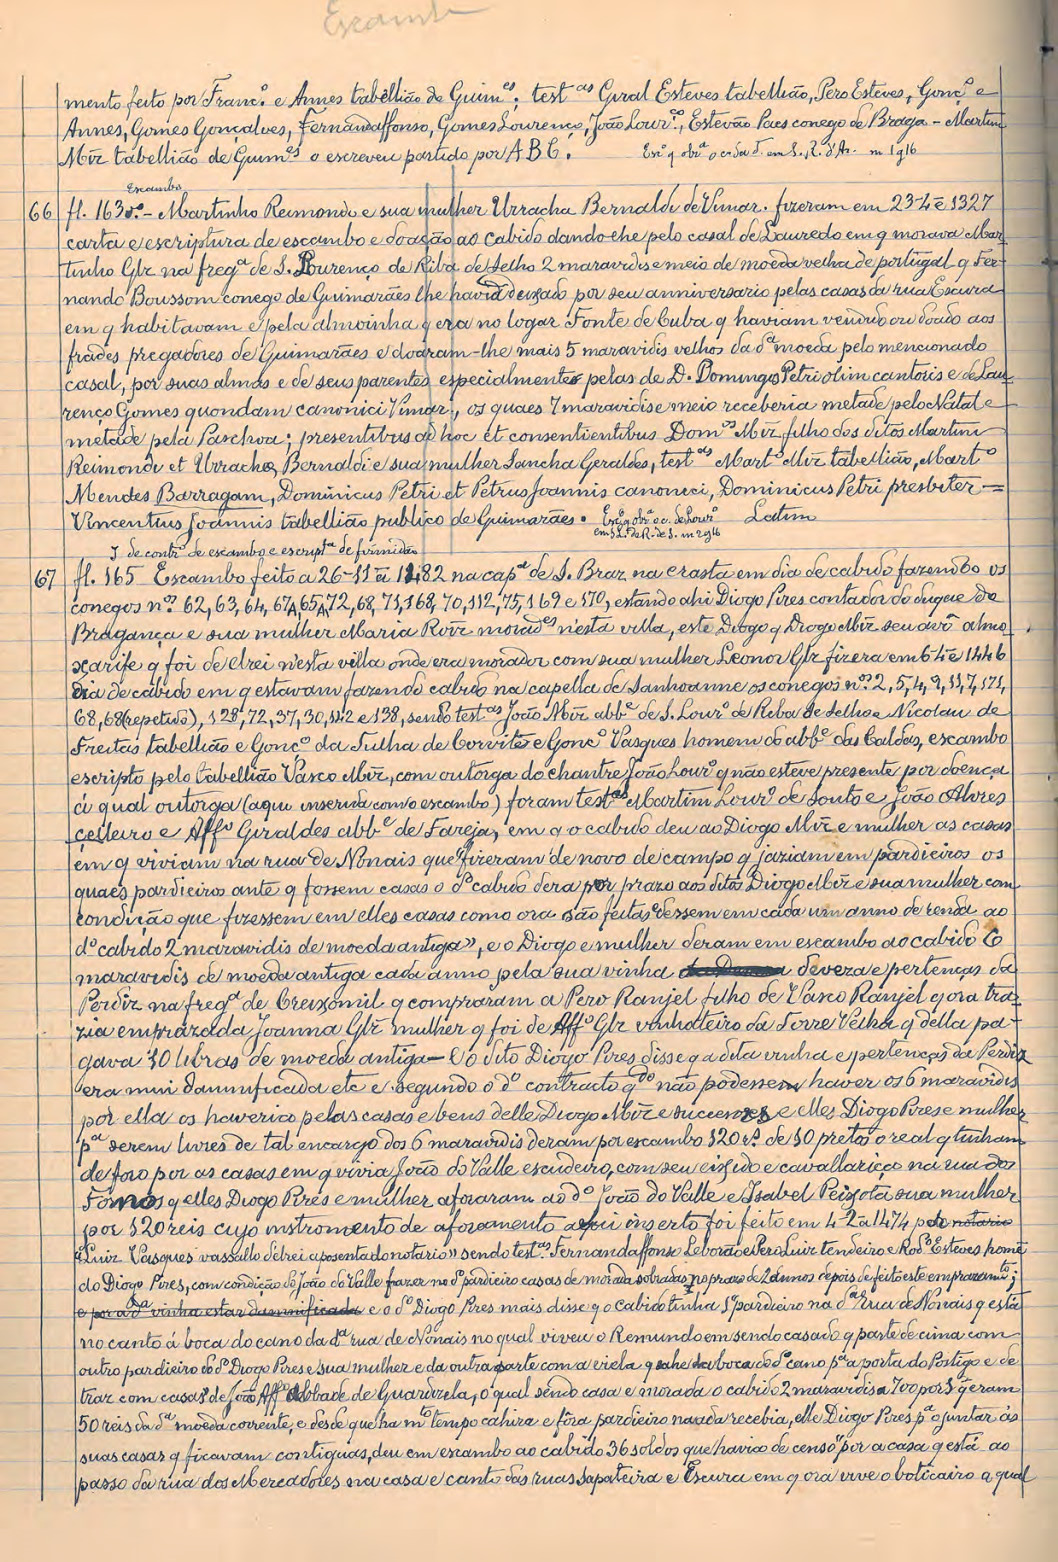 Escambo
mento feito por Franc.º e Annes tabellião de Guim.es; test.as Giral Esteves tabellião, Pero Esteves, Gonç.º e
Annes, Gomes Gonçalves, Fernandaffonso, Gomes Lourenço, João Lour.ço, Estevão Paes conego de Braga - Martim
Miz tabellião de Guim.es o escreveu partido por A B C.
Escambo
66 fl. 163 vº.- Martinho Reimondo e sua mulher Urracha Bernaldi de Vimar. fizeram em 23-4-ē 1327
carta e escriptura de escambo e doação ao cabido dando-lhe pelo casal de Lauredo em q morava Mar-
tinho Glz na freg.ª de S. Lourenço de Riba de Selho 2 maravidis e meio de moeda velha de portugal q Fer-
nando Boussom conego de Guimarães lhe havia deixado por seu anniversario pelas casas da rua Escura
em q habitavam e pela almoinha q era no logar Fonte de Cuba q haviam vendido ou doado aos
frades pregadores de Guimarães e doaram-lhe mais 5 maravidis velhos da d.ª moeda pelo mencionado
casal, por suas almas e de seus parentes especialmente pelas de D. Domingos Petri olim cantoris e de Lau-
renço Gomes quondam canonici Vimar., os quaes 7 maravidis e meio receberia metade pelo Natal e
metade pela Paschoa; presentibus ad hoc et consentientibus Dom.os Miz filho dos ditos Martim
Reimondi et Urracha Bernaldi e sua mulher Sancha Geraldes, test.as Mart.º Miz tabellião, Mart.º
Mendes Barragam, Dominicus Petri et Petrus Joannis canonici, Dominicus Petri presbiter =
Vincentius Joannis tabellião publico de Guimarães. Latim
I de contr.º de escambo e escript.ª de firmidão
67 fl. 165 Escambo feito a 26-11-ā 1482 na cap.ª de S. Braz na crasta em dia de cabido fazendo os
conegos n.os 62, 63, 64, 67A, 65A, 72, 68, 71, 168, 70, 112, 75, 169 e 170, estando ahi Diogo Pires contador do duque de
Bragança e sua mulher Maria Roiz morad.es n'esta villa, este Diogo q Diogo Miz seu avô almo
xarife q foi de elrei n'esta villa onde era morador com sua mulher Leonor Glz fizera em 6-4-ē 1446
dia de cabido em q estavam fazendo cabido na capella de Sanhoanne os conegos n.os 2, 5, 4, 9, 11, 7, 171,
68, 68 (repetido), 128, 72, 37, 30, 142 e 138, sendo test.as João Miz abb.e de S. Lour.ço de Riba de Selho e Nicolau de
Freitas tabellião e Gonç.º da Tulha de Corvite e Gonç.º Vasques homem do abb.e das Caldas, escambo
escripto pelo tabellião Vasco Miz, com outorga do chantre João Lour.ço q não esteve presente por doença
á qual outorga (aqui inserida com o escambo) foram test.as Martim Lour.ço de Souto e João Alvres
çeileiro e Aff.º Giraldes abb.e de Fareja, em q o cabido deu ao Diogo Miz e mulher as casas
em q viviam na rua de Nonais que "fizeram de novo de campo q jaziam em pardieiros os
quaes pardieiros ante q fossem casas o d.º cabido dera por prazo aos ditos Diogo Miz e sua mulher com
condição que fizessem em elles casas como ora são feitas e dessem em cada um anno de renda ao
d.º cabido 2 maravidis de moeda antiga», e o Diogo e mulher deram em escambo ao cabido 6
maravidis de moeda antiga cada anno pela sua vinha deveza e pertenças da
Perdiz na freg.ª de Creixomil q compraram a Pero Ranjel filho de Vasco Ranjel q ora tra-
zia emprazada Joanna Glz mulher q foi de Aff.º Glz vinhateiro da Torre Velha q della pa-
gava 10 libras de moeda antiga - E o dito Diogo Pires disse q a dita vinha e pertenças da Perdiz
era mui damnificada etc e segundo o d.º contracto q.do não podessem haver os 6 maravidis
por ella os haveria pelas casas e bens delle Diogo Miz e sucessores e elles Diogo Pires e mulher
p.ª serem livres de tal encargo dos 6 maravidis deram por escambo 120 r.s de 10 pretos o real q tinham
de foro por as casas em q vivia João do Valle escudeiro, com seu eixido e cavallariça na rua dos
Fornos q elles Diogo Pires e mulher aforaram ao d.º João do Valle e Isabel Peixota sua mulher
por 120 reis cujo instromento de aforamento aqui inserto foi feito em 4-2-ā 1474 pelo notario
"Luiz Vasques vassallo delrei aposentado notario» sendo test.as Fernandaffonso Leborão e Pero Luiz tendeiro e Rod.º Esteves home
do Diogo Pires, com condição do João do Valle fazer no d.º pardieiro casas de morada sobradas no prazo de 2 annos depois de feito este emprazam.to;
e por a d.ª vinha estar damnificada e o d.º Diogo Pires mais disse q o cabido tinha 1 pardieiro na d.ª Rua de Nonais q está
no canto á boca do cano da d.ª rua de Nonais no qual viveu o Remundo em sendo casa do q parte de cima com
outro pardieiro do d.º Diogo Pires e sua mulher e da outra parte com a viela q sahe da boca do d.º cano p.ª a porta do Postigo e de
traz com casas de João Aff.º abbade de Guardizela, o qual sendo casa e morada o cabido 2 maravidis a 700 por 1 q eram
50 reis da d.ª moeda corrente, e desde que ha m.to tempo cahira e fôra pardieiro nada recebia, elle Diogo Pires p.ª o juntar ás
suas casas q ficavam contiguas, deu em escambo ao cabido 36 soldos que havia de censo "por a casa q está ao
passo da rua dos Mercadores na casa e canto das ruas Sapateira e Escura em q ora vive o boticairo a qual